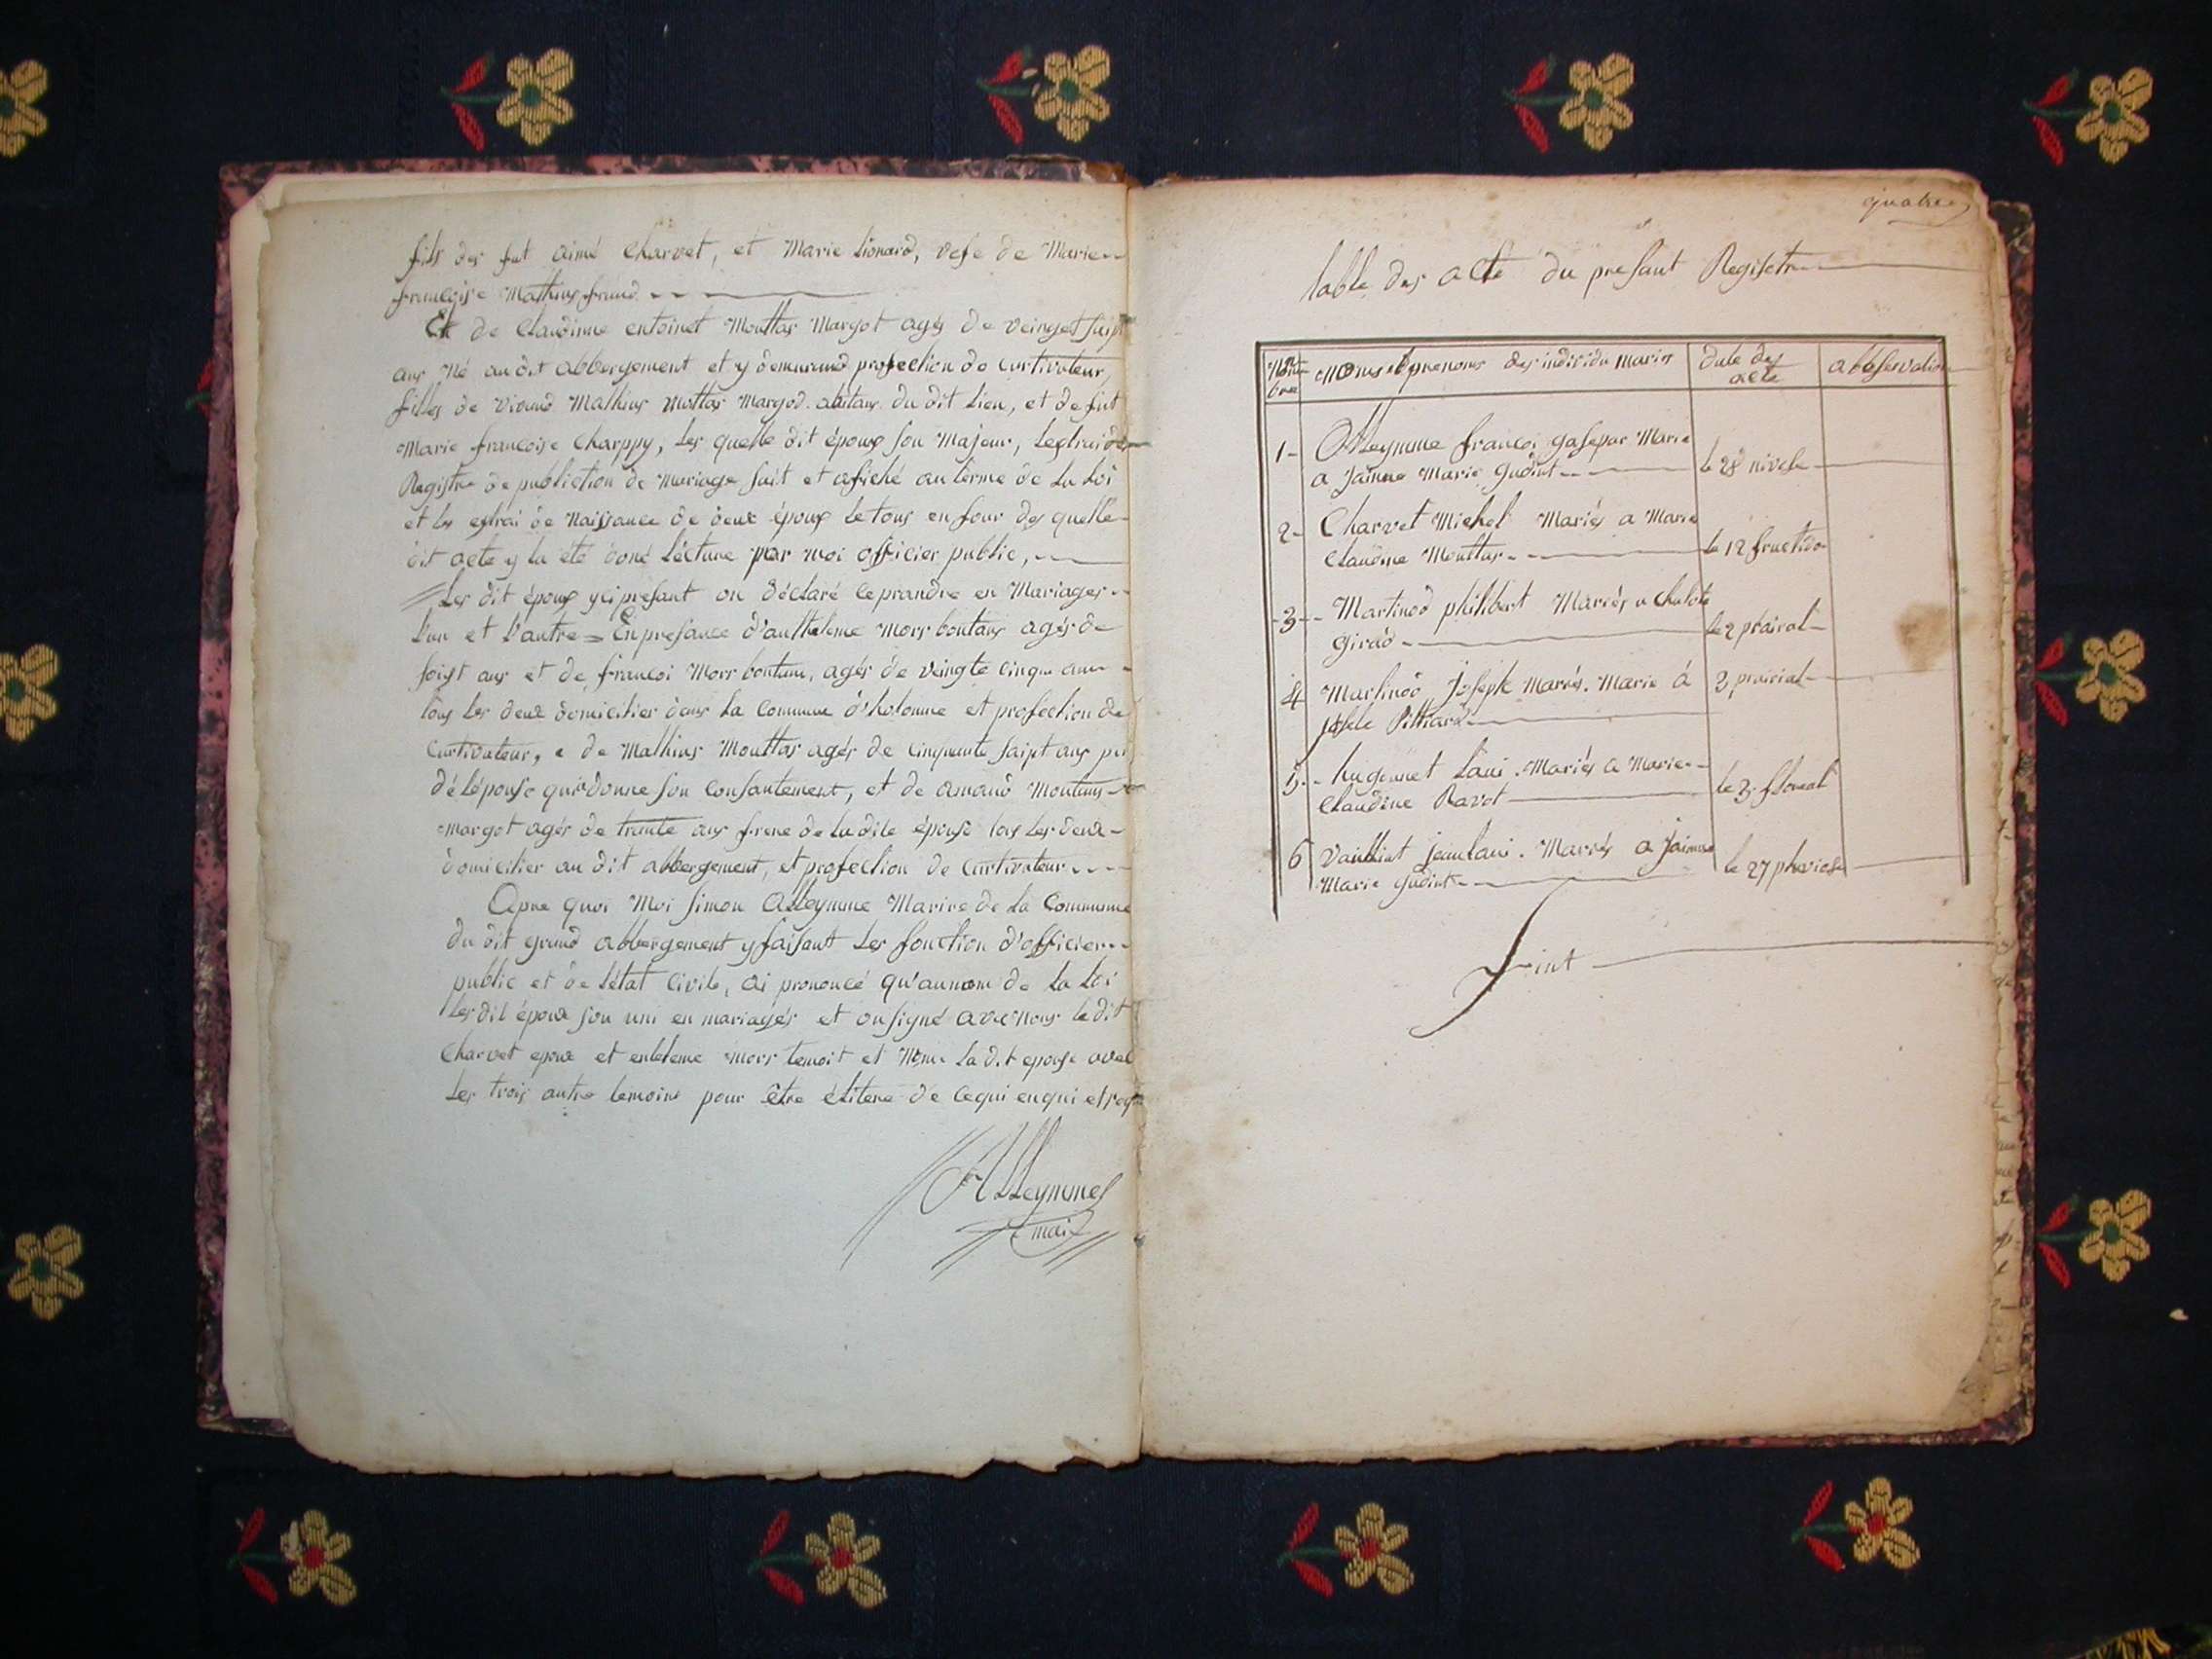 fils des fut aimé Charvet, et Marie Lionard, vefe de Marie
francoise Mathieu
Et de Claudinne entoinet Mouttas Margot agés de veinget saipt
ans Né au dit abbergement et y demeurand profection de curtivateur,
filles de Mathius Mottas Margod abitans du dit Lieu, et de fut
Marie francoise Charppy, Les quelle dit époux son Majeur,
Registre de publiction de Mariage fait et afiché au terme de La Loi
et les estrai de Naissance de deux époux le tous en four des quelle
dit acte y la été doné Lécture par moi officier public,
Les dit époux yci presant on déclaré ce prandre en Mariages
L'un et L'autre = En presance d'anthleme Mors boutans agés de
ans et de francoi Mors boutans, agés de veingte cinque ans
tous Les deux domicilier dans La Commune d'hotonne et profection de
Curtivateur, e de Mathius Mouttas agés de cinquante saipt ans
dé Lépouse qui donne son Consantement, et de amand Mouttas
margot agés de trante ans frere de La dite épouse tous Les deux
domicilier au dit abbergement, et profection de Curtivateur
Apre quoi Moi Simon Alleymme Marire de La Commune
du dit grand abbergement y faisant Les fonction d'officier
public et de Létat Civile, ai prononcé qu'au nom de La Loi
Les dit époux son uni en mariagés et on signé avec nous le dit
Charvet epoux et enteleme mors temoit et Nome La dit epouse avec
Les trois autre temoins pour être de ce qui enqui
Alleymmes
mair
quatre
table des acte du presant Registre
Nom bre Nomes et prenoms des individu mariés date des acte abbservation
1 Alleymme francoi gasepar Marie
a Jainne Marie gudint le 28 nivose
2 Charvet Michel Mariés a Marie
Claudine Mouttas le 12 fructidor
3 Martinod philibert Mariés a Chalote
girad le 2 prairal
4 Martinod Joseph mariés. Marie á 3 prairial
Josele Pilliard
5 hugonnet Laui. Mariés a Marie
Claudine Ravot le 3 floreal
6 Vaillint jean laui. Mariés a Jainne
Marie gudint le 27
fint